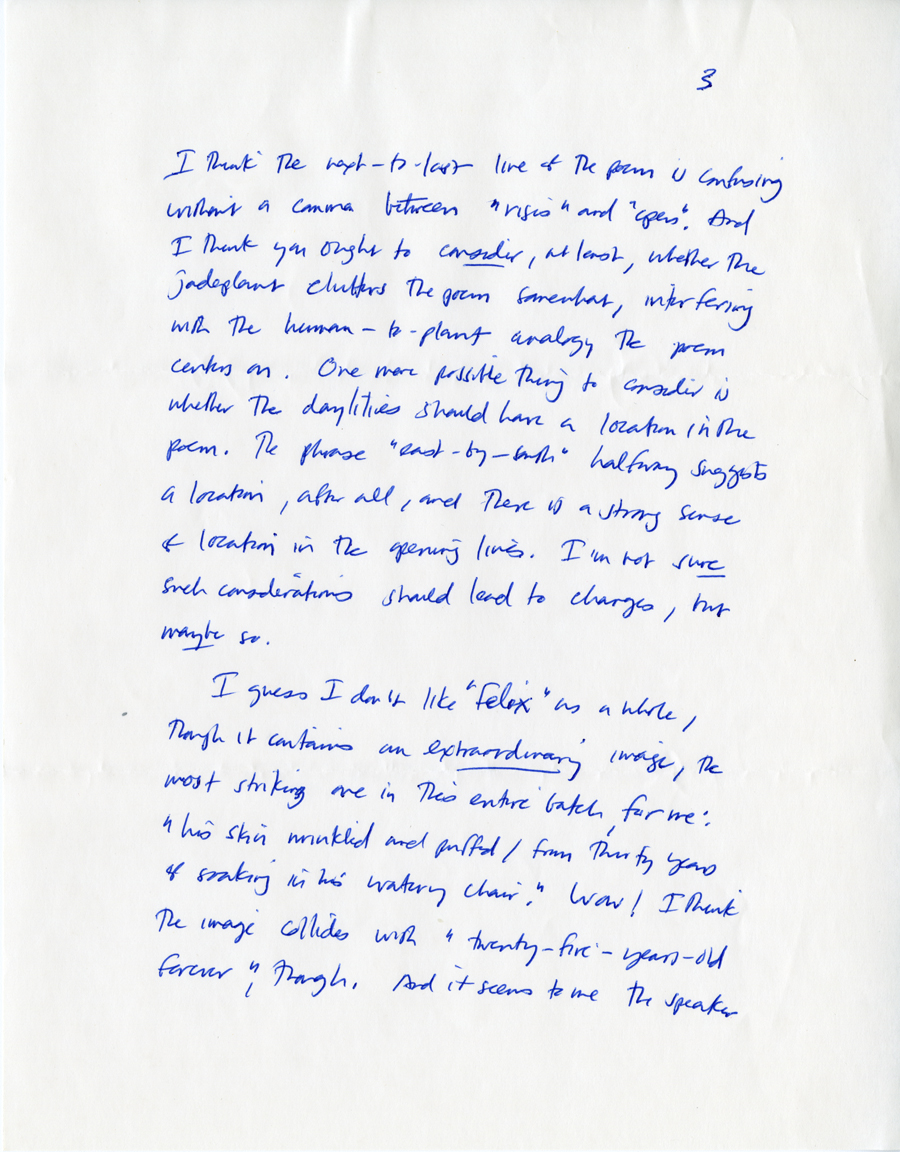 3
I think the next-to-last line of the poem is confusing
without a comma between "rises" and "opens". And
I think you ought to consider, at least, whether the
jadeplant clutters the poem somewhat, interfering
with the human-to-plant analogy the poem
centers on. One more possible thing to consider is
whether the daylilies should have a location in the
poem. The phrase "east-by-south" halfway suggests
a location, after all, and there is a strong sense
of location in the opening lines. I'm not sure
such considerations should lead to changes, but
maybe so.
I guess I don't like "Felix" as a whole,
though it contains an extraordinary image, the
most striking one in this entire batch, for me:
"his skin wrinkled and puffed / from thirty years
of soaking in his watery chair." Wow! I think
the image collides with "twenty-five-years-old
forever", though. And it seems to me the speaker